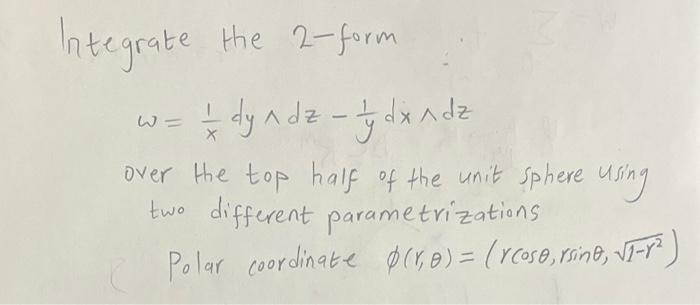 Integrate the 2-form
ω = 1/x dy ∧ dz - 1/y dx ∧ dz
over the top half of the unit sphere using
two different parametrizations
Polar coordinate ϕ(r,θ) = (rcosθ, rsinθ, √1-r²)